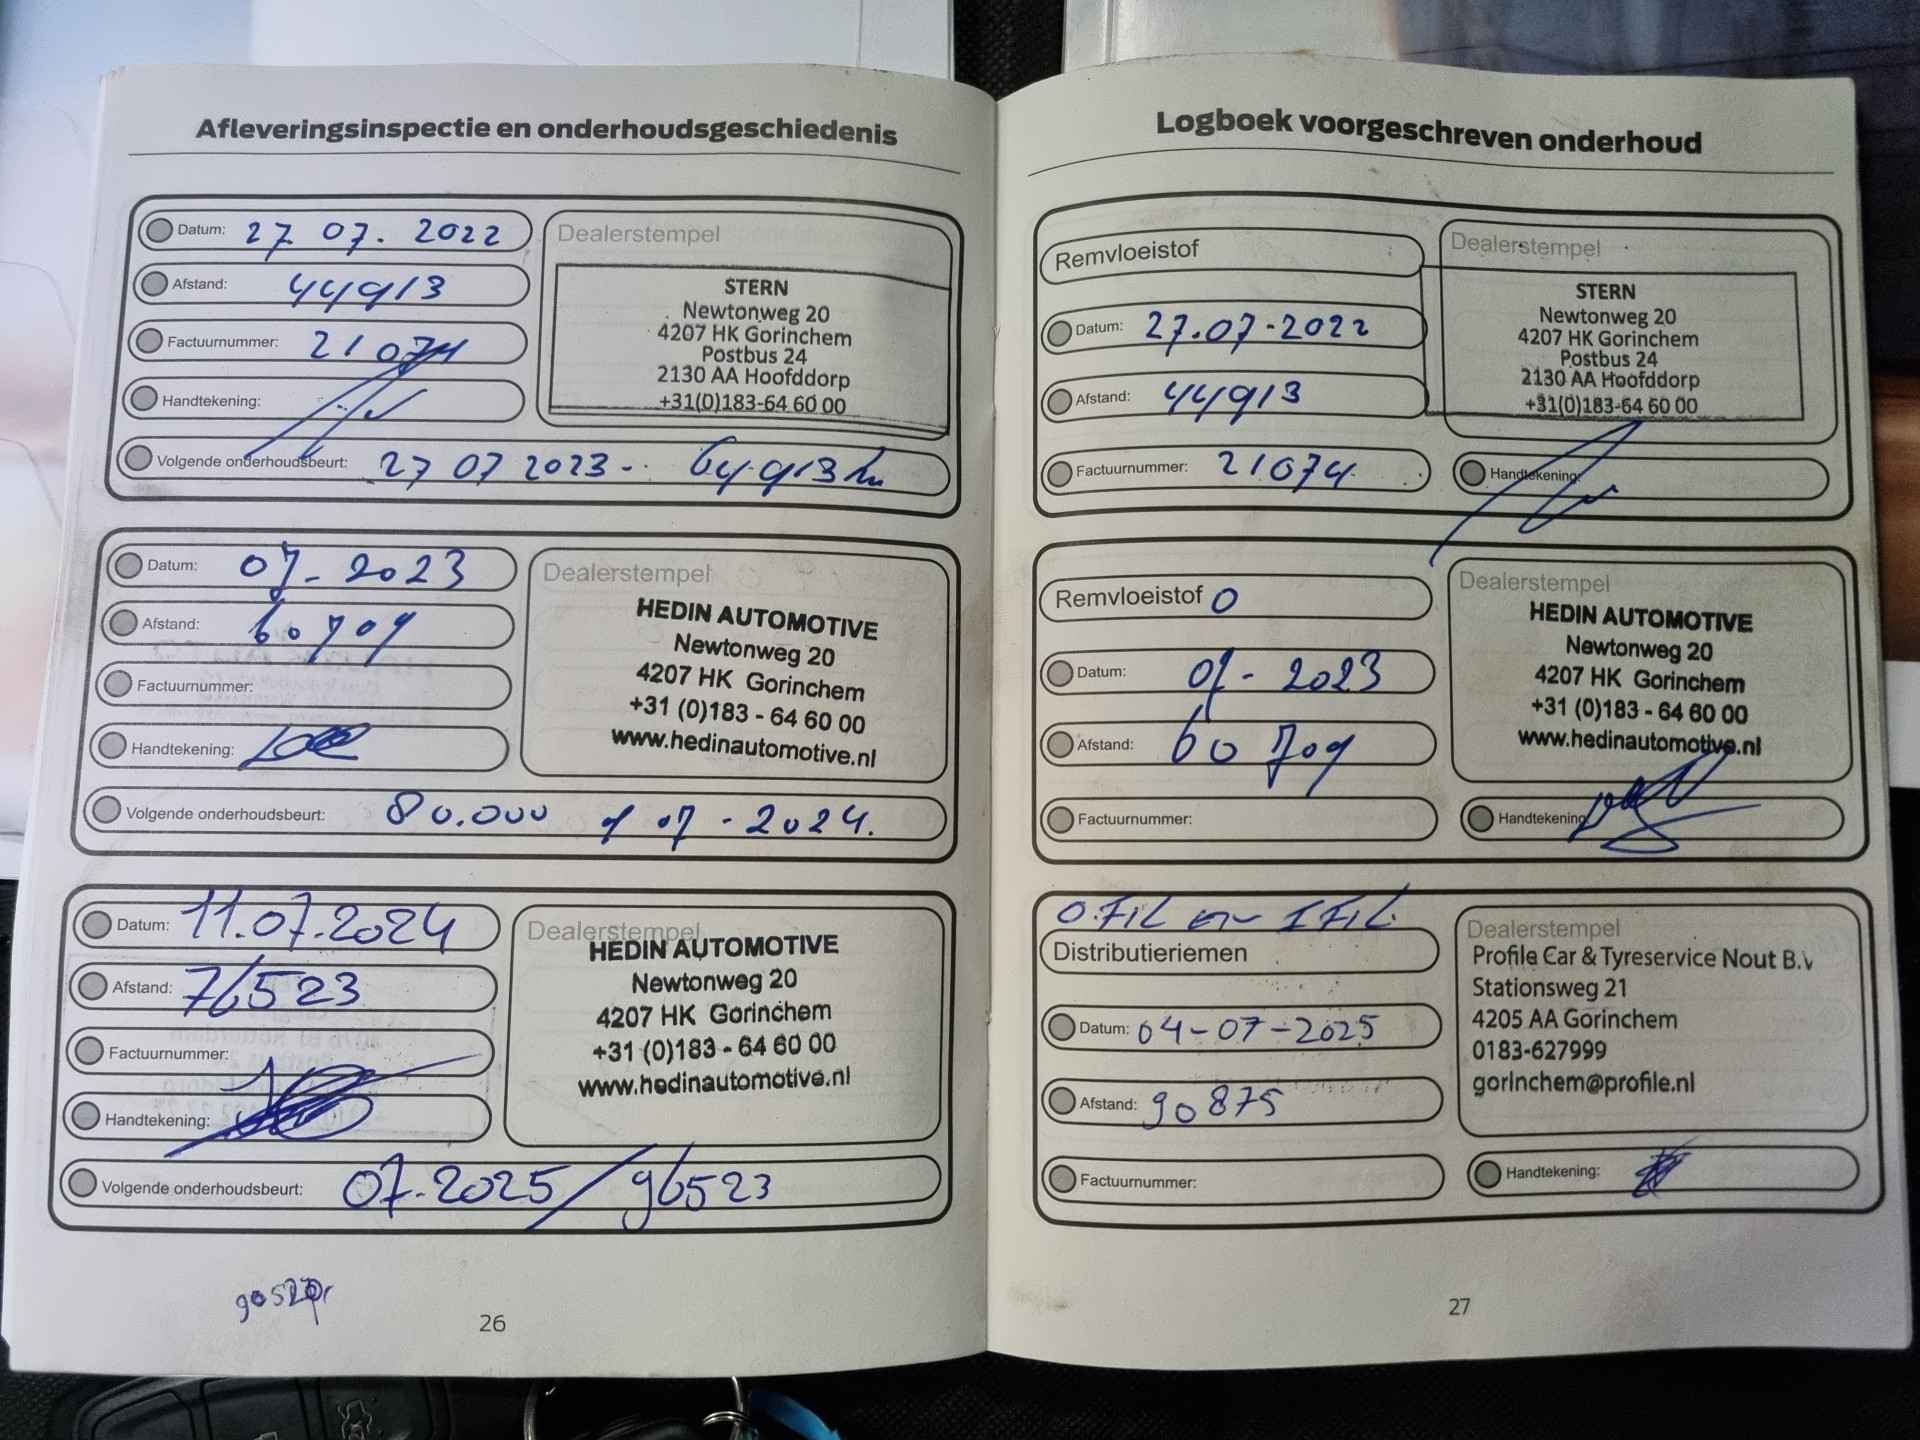 Afleveringsinspectie en onderhoudsgeschiedenis
Datum: 27 07. 2022
Afstand: 44913
Factuurnummer: 21074
Handtekening:
Volgende onderhoudsbeurt: 27 07 2023 - 64.913 km
Dealerstempel
STERN
Newtonweg 20
4207 HK Gorinchem
Postbus 24
2130 AA Hoofddorp
+31(0)183-64 60 00
Datum: 07 - 2023
Afstand: 60709
Factuurnummer:
Handtekening:
Volgende onderhoudsbeurt: 80.000 of 07 - 2024.
Dealerstempel
HEDIN AUTOMOTIVE
Newtonweg 20
4207 HK Gorinchem
+31 (0)183 - 64 60 00
www.hedinautomotive.nl
Datum: 11.07.2024
Afstand: 76523
Factuurnummer:
Handtekening:
Volgende onderhoudsbeurt: 07.2025 / 96523
Dealerstempel
HEDIN AUTOMOTIVE
Newtonweg 20
4207 HK Gorinchem
+31 (0)183 - 64 60 00
www.hedinautomotive.nl
26
Logboek voorgeschreven onderhoud
Remvloeistof
Datum: 27.07-2022
Afstand: 44913
Factuurnummer: 21074
Dealerstempel
STERN
Newtonweg 20
4207 HK Gorinchem
Postbus 24
2130 AA Hoofddorp
+31(0)183-64 60 00
Handtekening:
Remvloeistof O
Datum: 07 - 2023
Afstand: 60709
Factuurnummer:
Dealerstempel
HEDIN AUTOMOTIVE
Newtonweg 20
4207 HK Gorinchem
+31 (0)183 - 64 60 00
www.hedinautomotive.nl
Handtekening:
O.FIL en I FIL.
Distributieriemen
Datum: 04-07-2025
Afstand: 90875
Factuurnummer:
Dealerstempel
Profile Car & Tyreservice Nout B.V
Stationsweg 21
4205 AA Gorinchem
0183-627999
gorinchem@profile.nl
Handtekening:
27